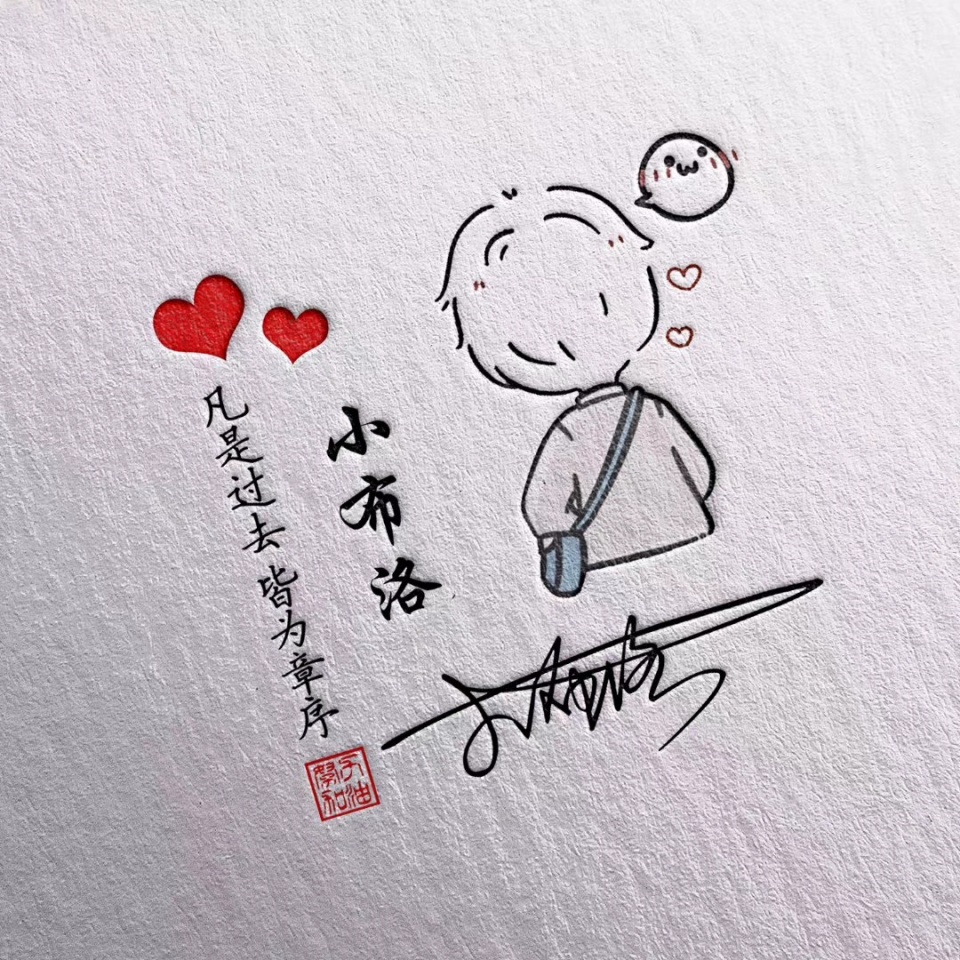 小布洛
凡是过去 皆为章序